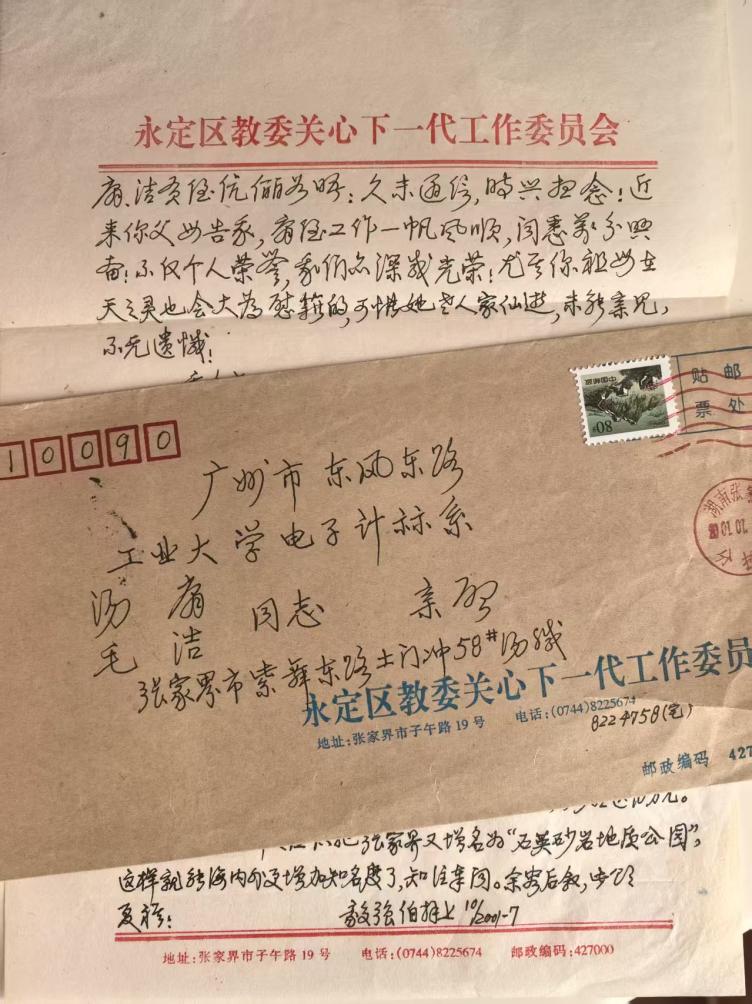 永定区教委关心下一代工作委员会
洁贤侄伉俪如晤：久未通信，时兴想念！近
来你父母告我，侄工作一帆风顺，闻悉万分兴
奋！不仅个人荣誉，我们亦深感光荣！尤其你祖母在
天之灵也会大为慰籍的，可惜她老人家仙逝，未能亲见，
不无遗憾！
中国邮政
80
贴邮
票处
10090
广州市东风东路
工业大学电子计标系
汤
毛洁 同志 亲启
张家界市紫舞东路土门冲58#汤缄
永定区教委关心下一代工作委员
地址:张家界市子午路19号 电话:(0744)8225674
8224758(宅)
邮政编码 427
湖南张
张家界又增名为“石英砂岩地质公园”，
这样就能海内外更增加知名度了，知注奉闻。余容后叙，此颂
夏祺！
伯拜上 10/2001-7
地址:张家界市子午路19号 电话:(0744)8225674 邮政编码:427000